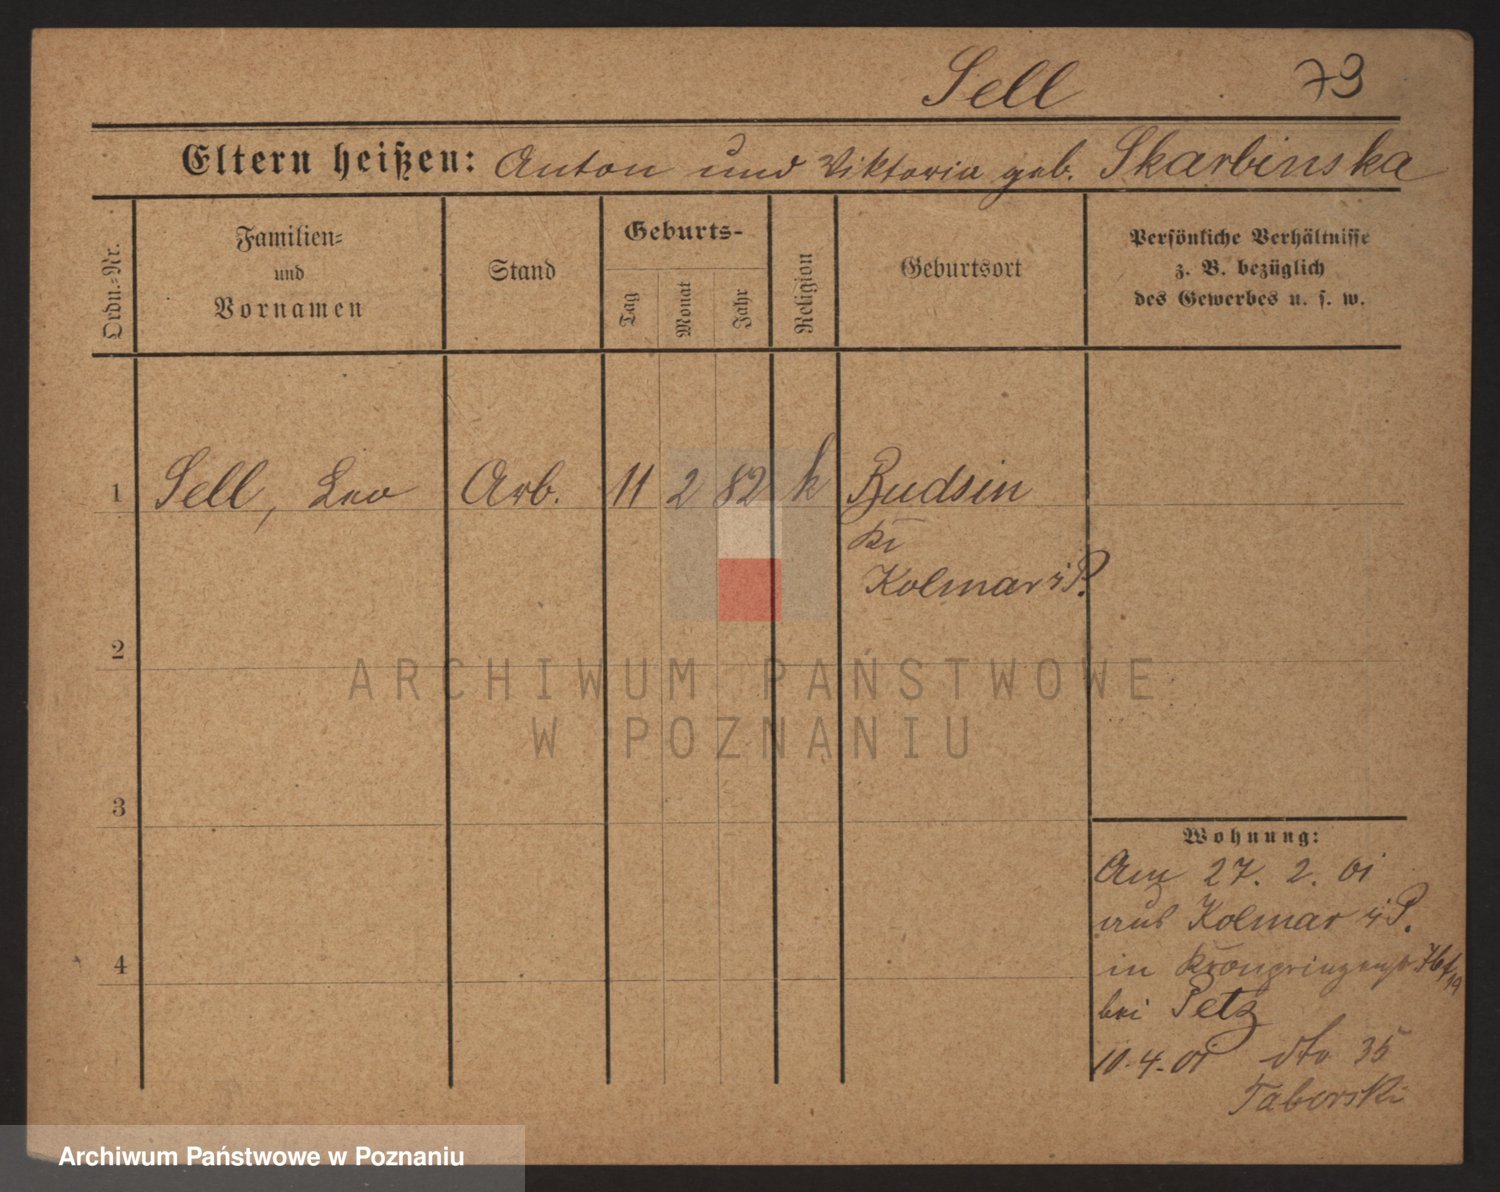 Sell 73
Eltern heißen: Anton und Viktoria geb. Skarbinska
Ordn.-Nr.
Familien-
und
Vornamen
Stand
Geburts-
Tag
Monat
Jahr
Religion
Geburtsort
Persönliche Verhältnisse
z. B. bezüglich
des Gewerbes u. s. w.
1 Sell, Leo Arb. 11 2 82 k Budsin
Kr
Kolmar i P.
2
ARCHIWUM PAŃSTWOWE
W POZNANIU
3
Wohnung:
Am 27. 2. 01
aus Kolmar i P.
4
in Kronprinzenstr.
bei Petz
10.4.01 dto 35
Taborski
Archiwum Państwowe w Poznaniu